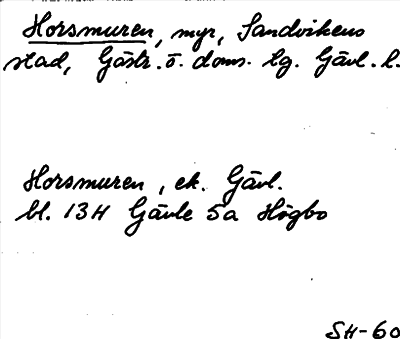 Horsmuren, myr, Sandvikens
stad, Gästr. ö. doms. lg. Gävl. l.
Horsmuren, ek. Gävl.
bl. 13H Gävle 5a Högbo
SH-60